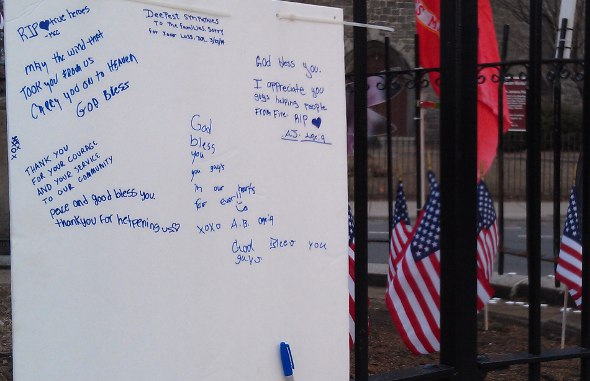 RIP ♥ true heroes
- mcc
may the wind that
TOOK you FROM US
CARRY YOU ON TO HEAVEN
GOD BLESS
DeePest SYMPATHIES
To The Families. Sorry
For Your Loss.
God bless you.
I appreciate you
guys helping people
From Fire RIP ♥
A.J. age.9
XOXO
THANK YOU
FOR YOUR COURAGE
AND YOUR SERVICE
TO OUR COMMUNITY
peace and good bless you
thankyou for helpening us♡
God
bless
you
you guy's
in our hearts
for ever!
xoxo A.B.
God Bless you
guys